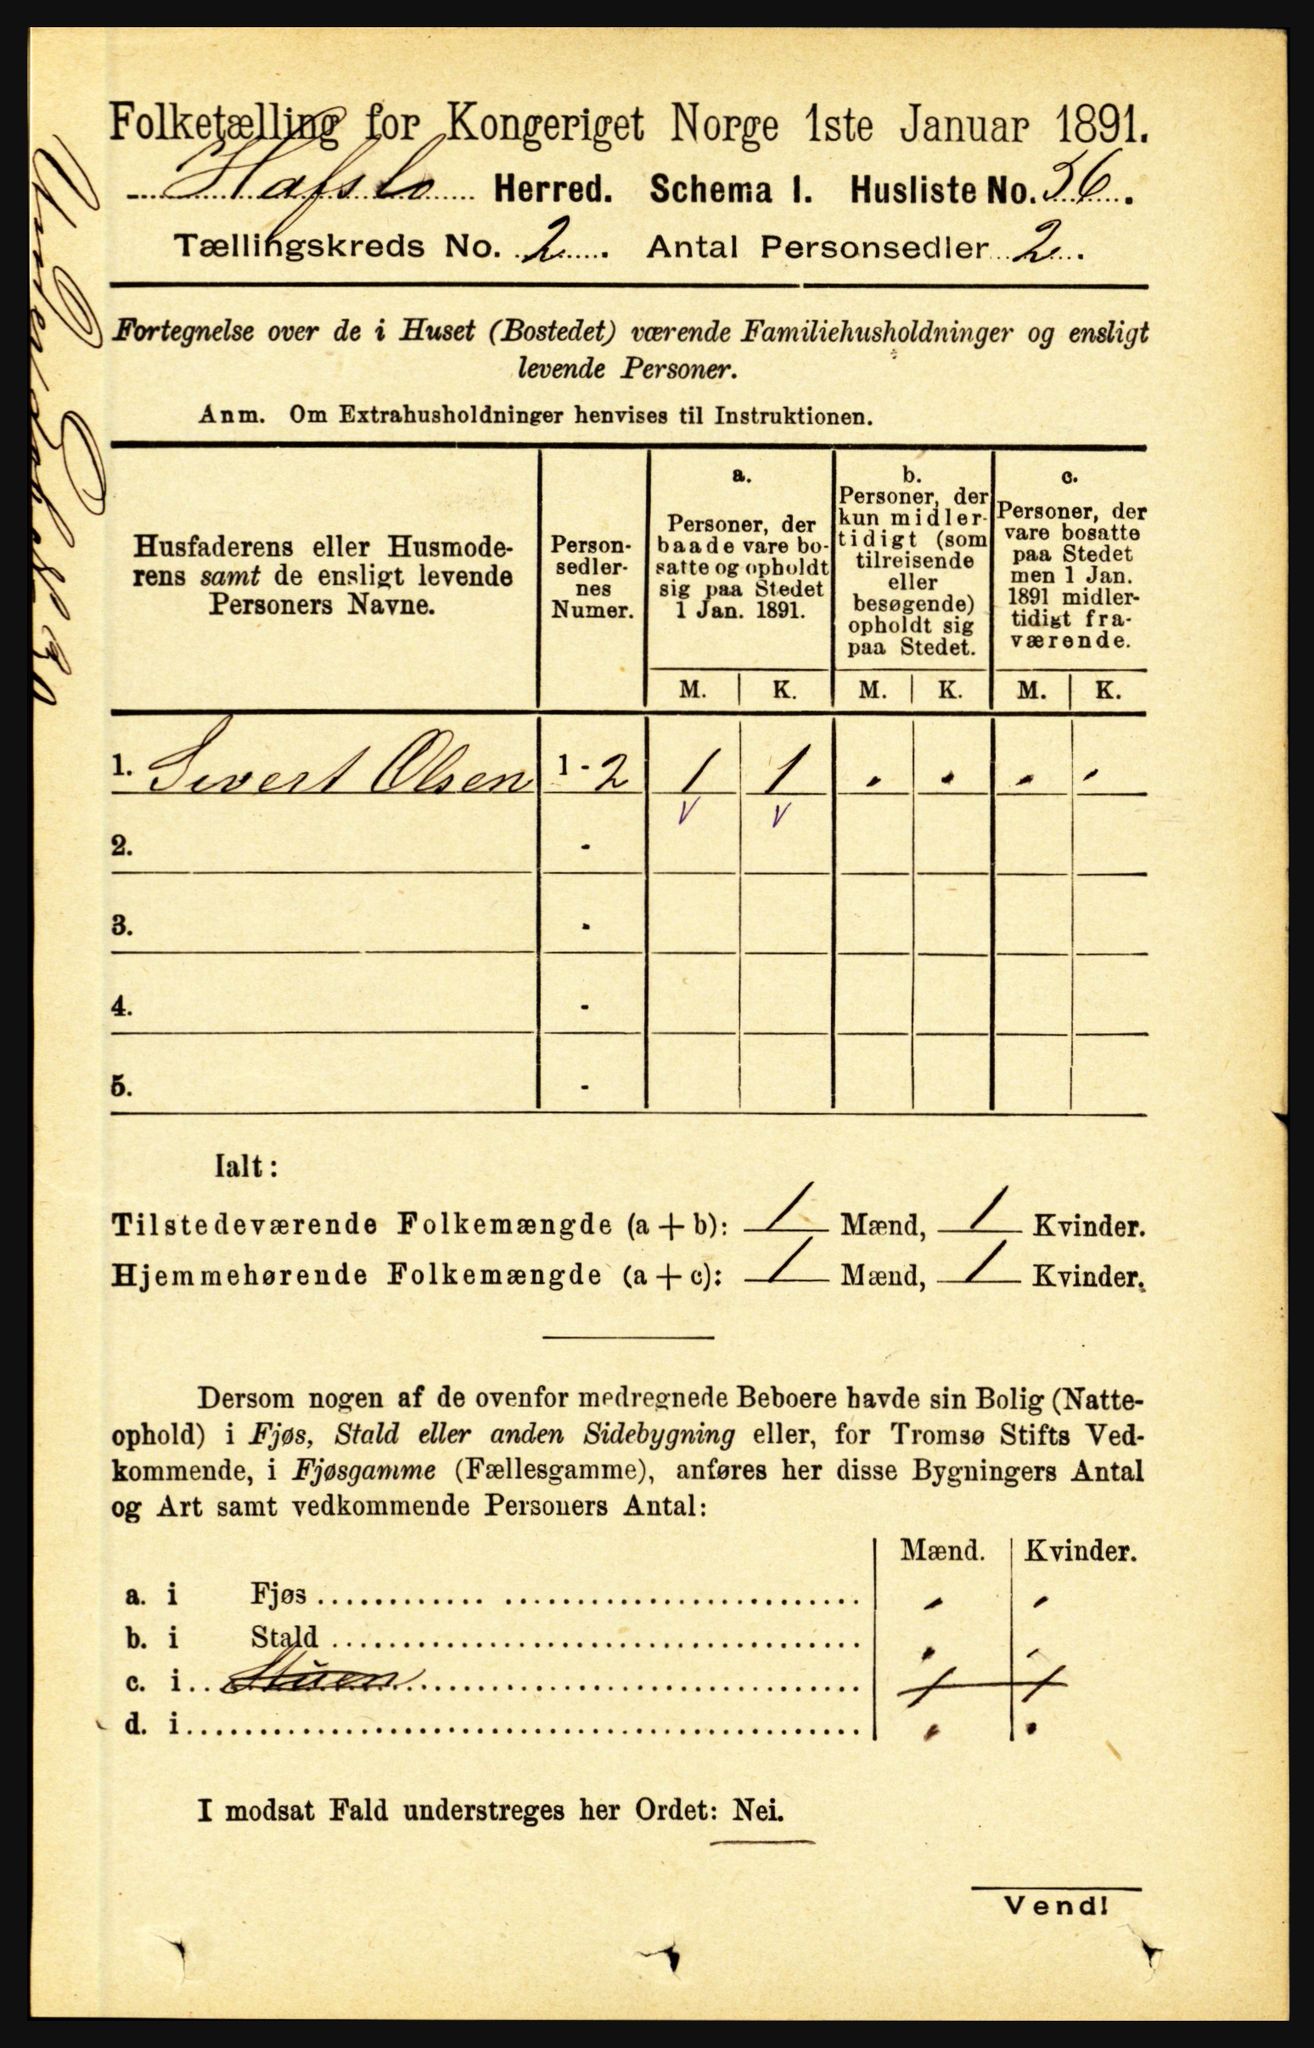 Folketælling for Kongeriget Norge 1ste Januar 1891.
Hafslo Herred. Schema I. Husliste No. 36.
Tællingskreds No. 2. Antal Personsedler 2.
Fortegnelse over de i Huset (Bostedet) værende Familiehusholdninger og ensligt
levende Personer.
Anm. Om Extrahusholdninger henvises til Instruktionen.
Husfaderens eller Husmode-
rens samt de ensligt levende
Personers Navne.
Person-
sedler-
nes
Numer.
a.
Personer, der
baade vare bo-
satte og opholdt
sig paa Stedet
1 Jan. 1891.
b.
Personer, der
kun midler-
tidigt (som
tilreisende
eller
besøgende)
opholdt sig
paa Stedet.
c.
Personer, der
vare bosatte
paa Stedet
men 1 Jan.
1891 midler-
tidigt fra-
værende.
M. K. M. K. M. K.
1. Sivert Olsen 1 - 2 1 1 . . . .
2. -
3. -
4. -
5. -
Ialt:
Tilstedeværende Folkemængde (a + b): 1 Mænd, 1 Kvinder.
Hjemmehørende Folkemængde (a + c): 1 Mænd, 1 Kvinder.
Dersom nogen af de ovenfor medregnede Beboere havde sin Bolig (Natte-
ophold) i Fjøs, Stald eller anden Sidebygning eller, for Tromsø Stifts Ved-
kommende, i Fjøsgamme (Fællesgamme), anføres her disse Bygningers Antal
og Art samt vedkommende Personers Antal:
Mænd. Kvinder.
a. i Fjøs
b. i Stald
c. i Stuen 1 1
d. i
I modsat Fald understreges her Ordet: Nei.
Vend!